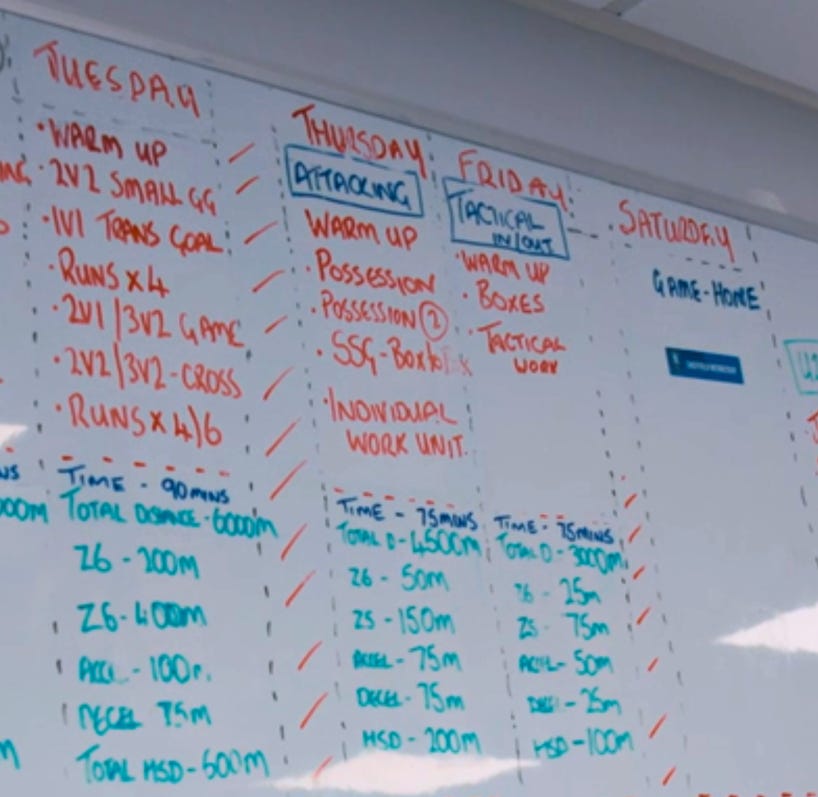 TUESDAY
· WARM UP
· 2V2 SMALL GG
· 1V1 TRANS GOAL
· RUNS X 4
· 2V1/3V2 GAME
· 2V2/3V2-CROSS
· RUNS X 4/6
TIME - 90MINS
TOTAL DISTANCE - 6000M
Z6 - 200M
Z6 - 400M
ACCL - 100
DECEL 75M
TOTAL HSD - 600M
THURSDAY
ATTACKING
WARM UP
· POSSESSION
· POSSESSION 2
· SSG - Box to
· INDIVIDUAL
WORK UNIT.
TIME - 75MINS
TOTAL D - 4500M
Z6 - 50M
Z5 - 150M
ACCEL - 75M
DECEL - 75M
HSD - 200M
FRIDAY
TACTICAL
IN/OUT
· WARM UP
· BOXES
· TACTICAL
WORK
TIME - 75MINS
TOTAL D - 3000M
Z6 - 25M
Z5 - 75M
ACCEL - 50M
- 25M
HSD - 100M
SATURDAY
GAME - HOME